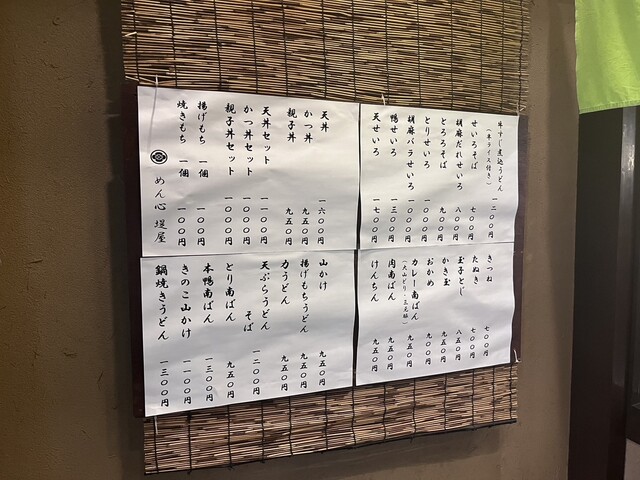 牛すじ煮込うどん 一二〇〇円
(半ライス付き)
せいろそば 七〇〇円
胡麻だれせいろ 八〇〇円
とろろそば 九〇〇円
とりせいろ 一〇〇〇円
胡麻バラせいろ 一〇〇〇円
鴨せいろ 一三〇〇円
天せいろ 一七〇〇円
天丼 一六〇〇円
かつ丼 九五〇円
親子丼 九五〇円
天丼セット 一一〇〇円
かつ丼セット 一〇〇〇円
親子丼セット 一〇〇〇円
揚げもち 一個 一〇〇円
焼きもち 一個 一〇〇円
めん心 堤屋
きつね 七〇〇円
たぬき 七〇〇円
玉子とじ 八五〇円
かき玉 九五〇円
おかめ 九五〇円
カレー南ばん 九五〇円
肉南ばん 九五〇円
けんちん 九五〇円
山かけ 九五〇円
揚げもちうどん 九五〇円
力うどん 九五〇円
天ぷらうどん
そば 一二〇〇円
とり南ばん 九五〇円
本鴨南ばん 一三〇〇円
きのこ山かけ 一一〇〇円
鍋焼きうどん 一三〇〇円